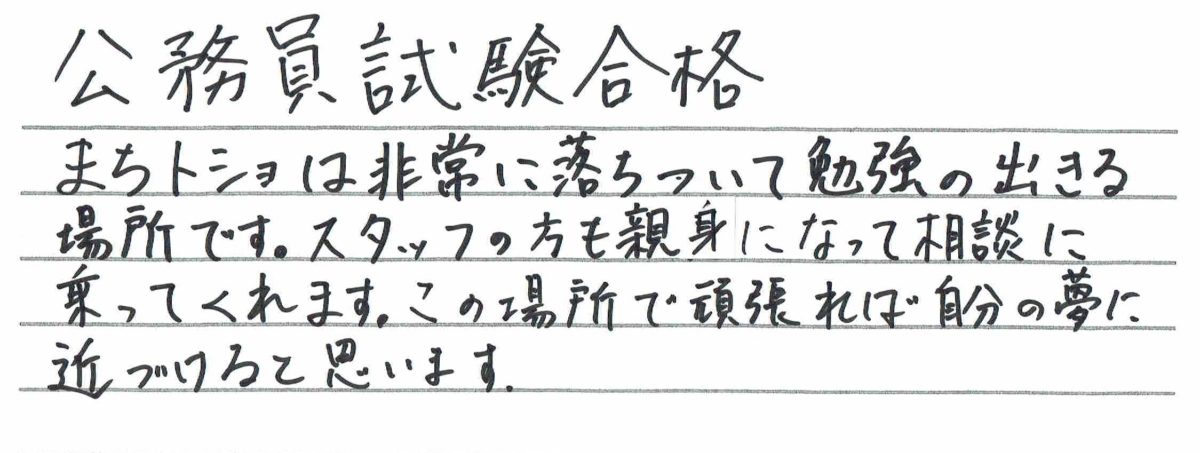 公務員試験合格
まちトショは非常に落ちついて勉強の出きる
場所です。スタッフの方も親身になって相談に
乗ってくれます。この場所で頑張れば自分の夢に
近づけると思います。